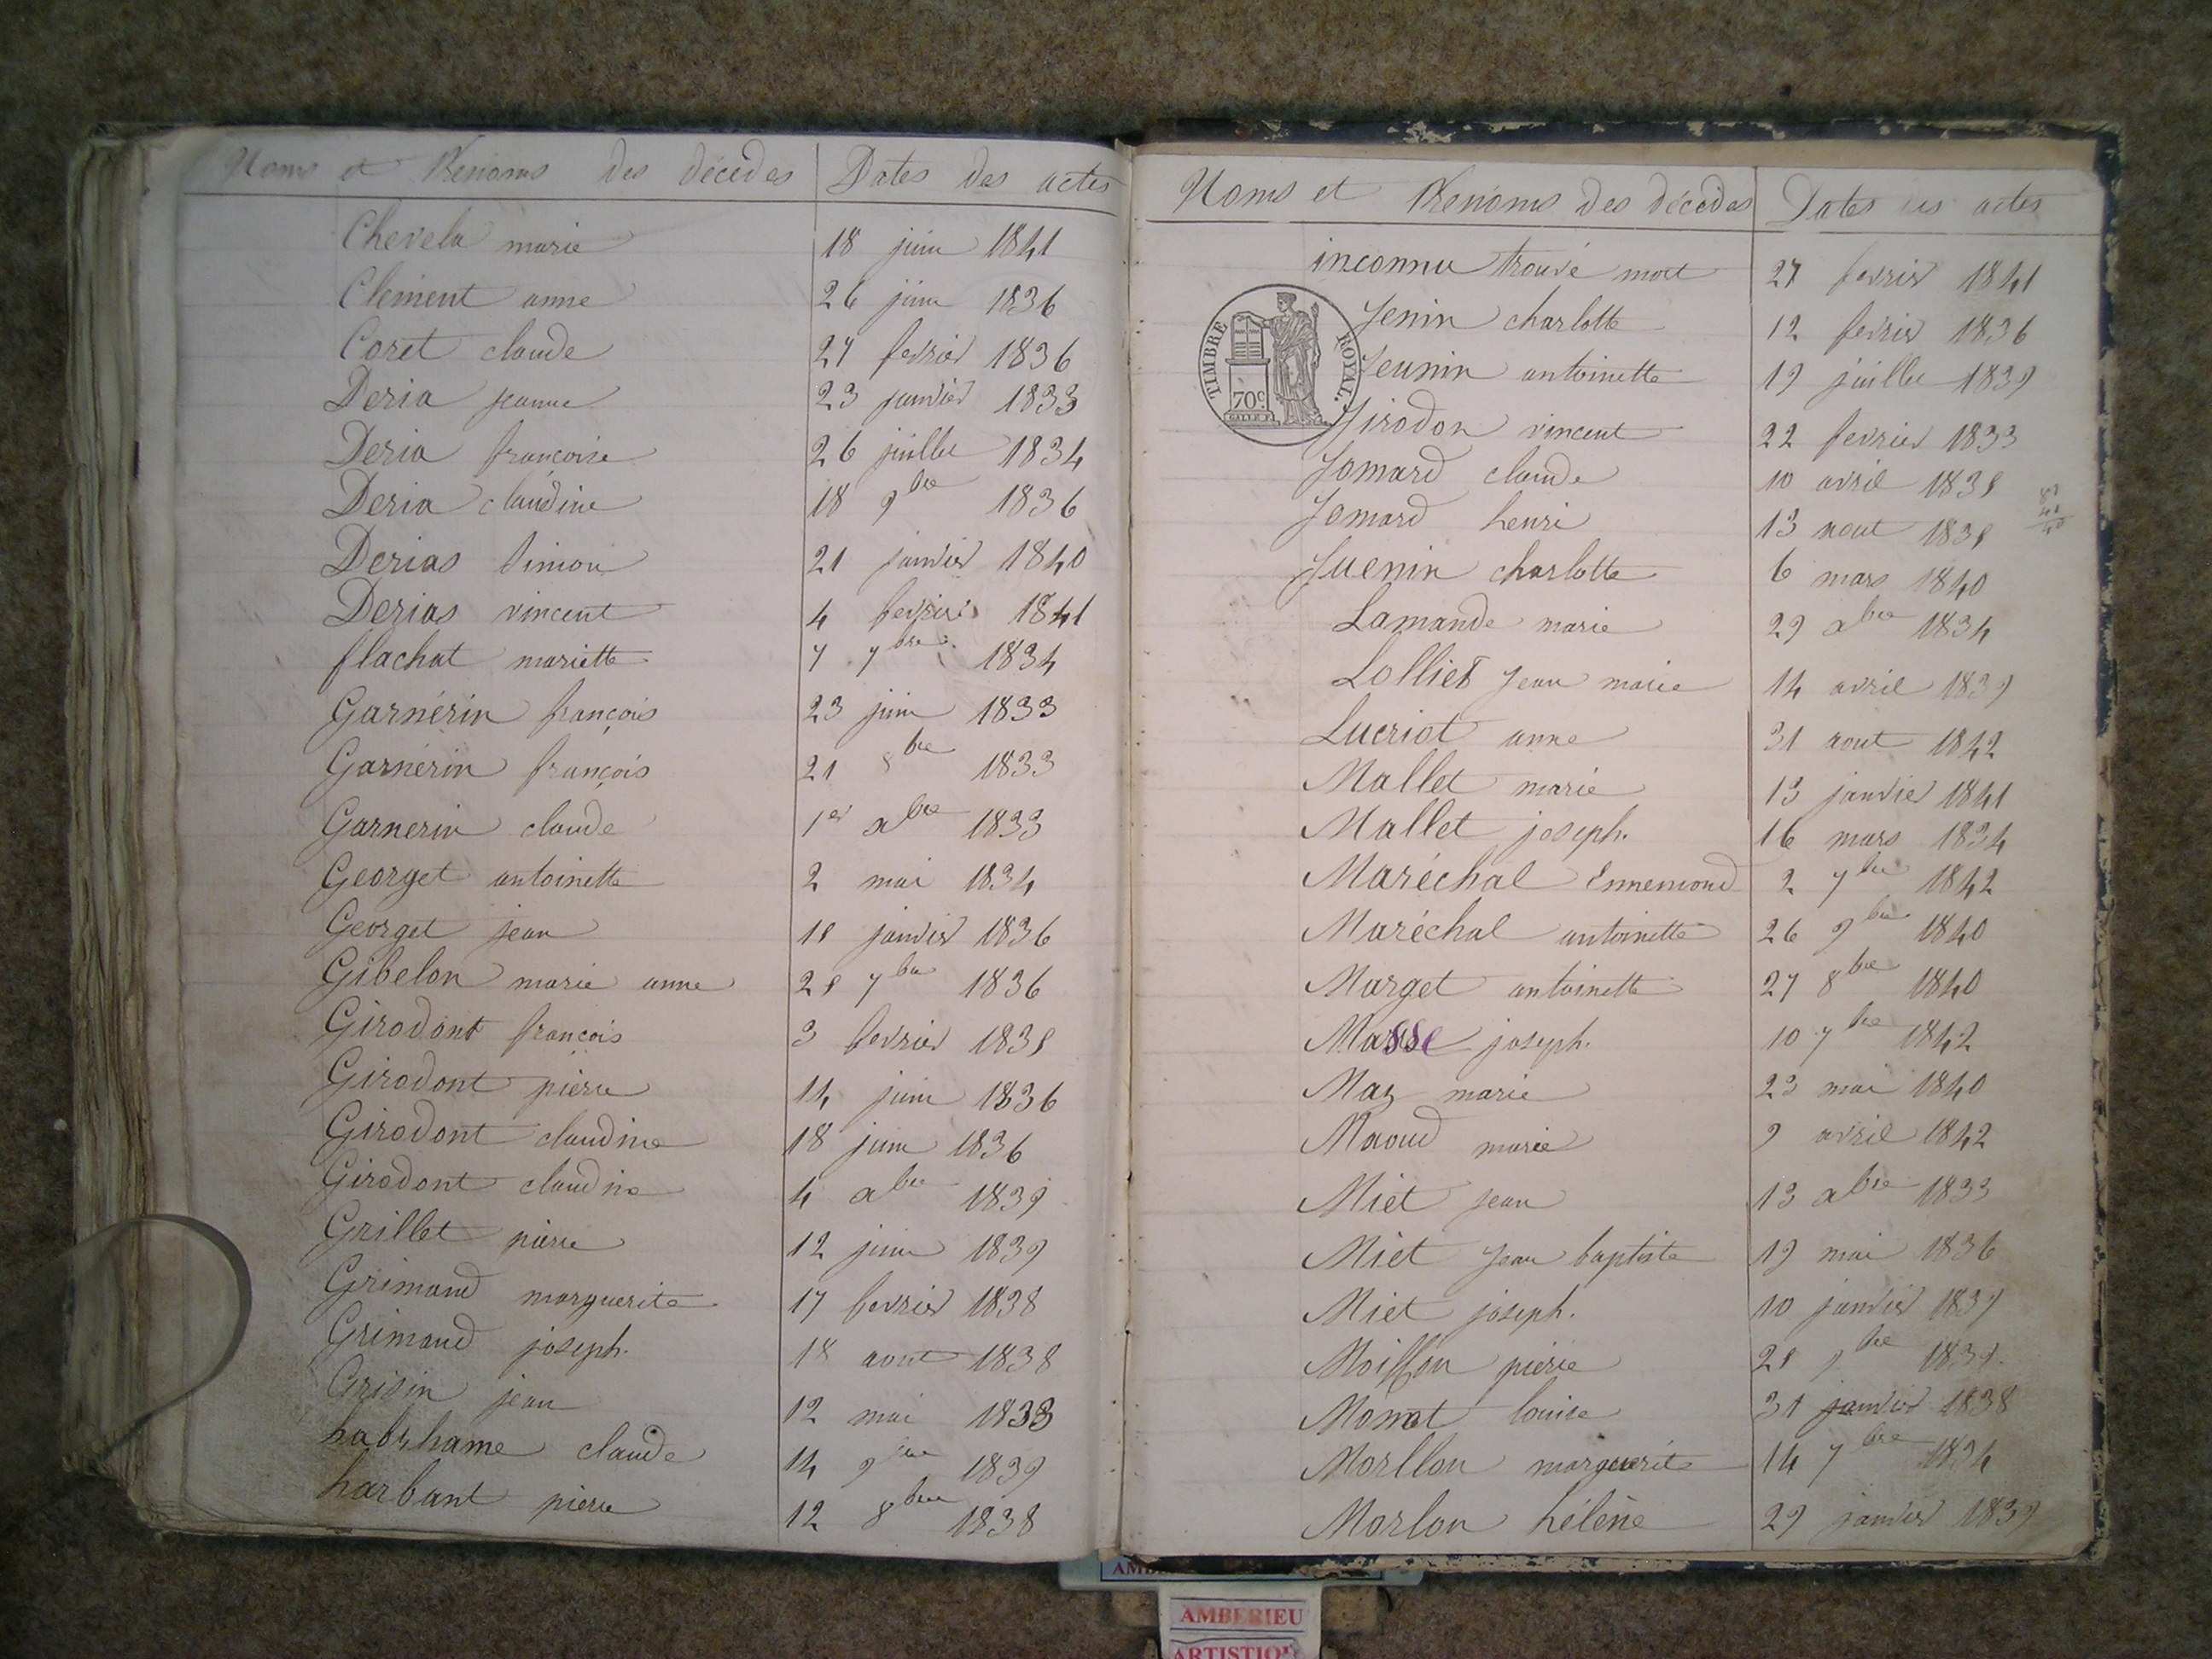 Noms et Prenoms des décédes Dates des actes
Chevela marie 18 juin 1841
Clément anne 26 juin 1836
Coret claude 27 fevrier 1836
Deria jeanne 23 janvier 1833
Deria françoise 26 juillet 1834
Deria claudine 18 9bre 1836
Derias Simon 21 janvier 1840
Derias vincent 4 fevrier 1841
flachat mariette 7 7bre 1834
Garnérin françois 23 juin 1833
Garnérin françois 21 8bre 1833
Garnerin claude 1er xbre 1833
Georget antoinette 2 mai 1834
Georget jean 18 janvier 1836
Gibelon marie anne 28 7bre 1836
Girodont françois 3 fevrier 1838
Girodont pierre 14 juin 1836
Girodont claudine 18 juin 1836
Girodont claudine 4 xbre 1839
Grillet pierre 12 juin 1839
Grimaud marguerite 17 fevrier 1838
Grimaud joseph. 18 aout 1838
Grisin jean 12 mai 1833
claude 14 9bre 1839
harbant pierre 12 8bre 1838
Noms et Prenoms des décédés Dates des actes
inconnu trouvé mort 27 fevrier 1841
Jenin charlotte 12 fevrier 1836
Jeunin antoinette 19 juillet 1839
Jirodon vincent 22 fevrier 1833
Jomard claude 10 avril 1838
Jomard henri 13 aout 1838
Juenin charlotte 6 mars 1840
Lamande marie 29 xbre 1834
Lolliet Jean marie 14 avril 1839
Lucriot anne 31 aout 1842
Mallet marie 13 janvier 1841
Mallet joseph. 16 mars 1834
Maréchal Ennemond 2 7bre 1842
Maréchal antoinette 26 9bre 1840
Marget antoinette 27 8bre 1840
Masse joseph. 10 7bre 1842
Maz marie 23 mai 1840
Maoud marie 9 avril 1842
Miét Jean 13 xbre 1833
Miét Jean baptiste 19 mai 1836
Miét joseph. 10 janvier 1839
Moisson pierre 28 9bre 1839
Monat louise 31 janvier 1838
Morllon marguerite 14 7bre 1834
Morlon hélène 29 janvier 1839
TIMBRE ROYAL.
70c.
AMBERIEU
ARTISTIQUE